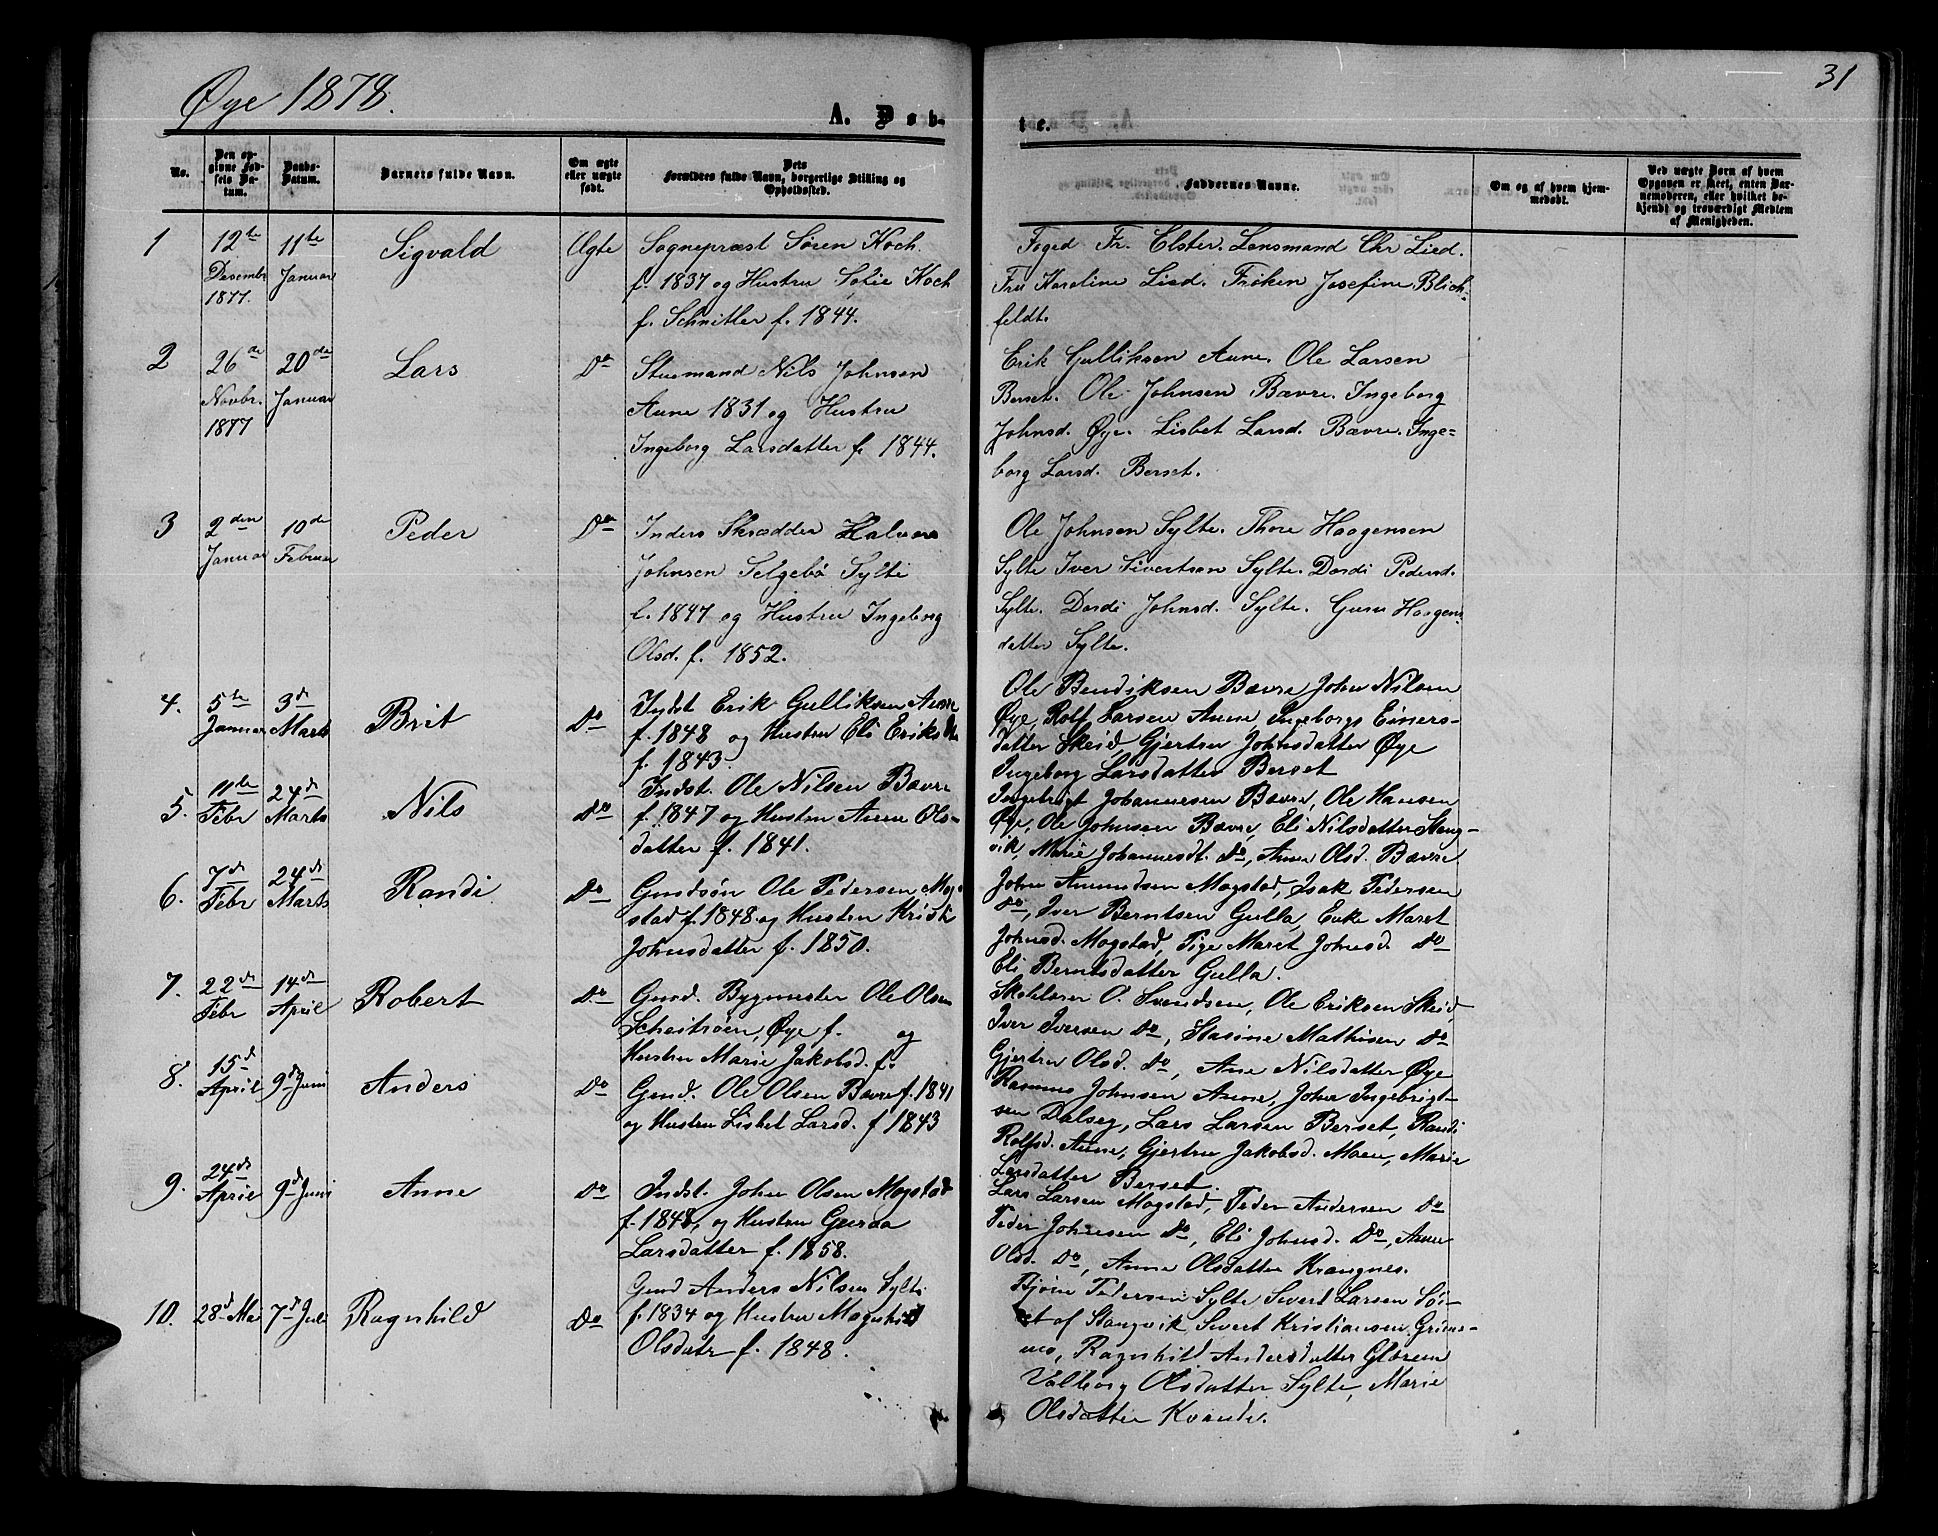 Øye 1878.
31
A. Døb-
te.
No.
Den op-
givne Fød-
sels Da-
tum.
Daabs-
Datum.
Barnets fulde Navn.
Om ægte
eller uægte
født.
Dets
Forældres fulde Navn, borgerlige Stilling og
Opholdssted.
Faddernes Navne.
Om og af hvem hjem-
medøbt.
Ved uægte Børn af hvem
Opgaven er skeet, enten Bar-
nemoderen, eller hvilket be-
kjendt og troværdigt Medlem
af Menigheden.
1
12te
Desembr
1877.
11te
Januar
Sigvald
Ægte
Sognepræst Søren Koch
f. 1837 og Hustru Sofie Koch
f. Schnitler f. 1844.
Foged Fr. Elster. Lensmand Chr Lied.
Fru Karoline Lied. Frøken Josefine Blich-
feldt.
2
26de
Novbr.
1877
20de
Januar
Lars
Do
Stusmand Nils Johnsen
Aune 1831 og Hustru
Ingeborg Larsdatter f. 1844.
Erik Gulliksen Aune. Ole Larsen
Berset. Ole Johnsen Bævre. Ingeborg
Johnsd. Øye. Lisbet Larsd. Bævre. Inge-
borg Larsd. Berset.
3
2den
Januar
10de
Februar
Peder
Do
Inders Skrædder Halvor
Johnsen Selgebø Sylte
f. 1847 og Hustru Ingeborg
Olsd. f. 1852.
Ole Johnsen Sylte. Thore Haagensen
Sylte Iver Sivertsen Sylte. Dordi Pedersd.
Sylte. Dordi Johnsd. Sylte. Guru Haagens-
datter Sylte.
4.
5te
Januar
3d
Marts
Brit
Do
Indst Erik Gulliksen Aune
f. 1848 og Hustru Eli Eriksdtr
f. 1843.
Ole Bendiksen Bævre John Nilsen
Øye, Rolf Larsen Aune, Ingeborg Einers-
datter Skeid, Gjertru Johnsdatter Øye
Ingeborg Larsdatter Berset
5.
11te
Febr
24d
Marts
Nils
Do
Indst. Ole Nilsen Bævre
f. 1847 og Hustru Anne Ols-
datter f. 1841.
Ingebrigt Johannesen Bævre, Ole Hansen
Øye, Ole Johnsen Bævre, Eli Nilsdatter Stang-
vik, Marie Johannesdt. Do, Anne Olsd. Bævre.
6.
7d
Febr
24d
Marts
Randi
Do
Gaardsøn Ole Pedersen Mog-
stad f. 1848 og Hustru Kristi
Johnsdatter f. 1850.
John Amundsen Mogstad, Isak Pedersen
Do, Iver Berntsen Gulla, Enke Maret
Johnsd. Mogstad, Pige Maret Johnsd. Do
Eli Berntsdatter Gulla.
7.
22d
Febr
14d
April
Robert
Do
Gmd. Bygmester Ole Olsen
Øye f. og
Hustru Marie Jakobsd. f.
Skolelærer O. Svendsen, Ole Eriksen Skeid,
Iver Iversen Do, Stasine Mathisen Do
Gjertru Olsd. Do, Ane Nilsdatter Øye
8.
15d
April
9d Juni
Anders
Do
Gmd. Ole Olsen Bævre f. 1841
og Hustru Lisbet Larsd. f 1843
Rasmus Johnsen Aune, John Ingebrigt-
sen Dalseg, Lars Larsen Berset, Randi
Rolfsd. Aune, Gjertru Jakobsd. Moen, Marie
Larsdatter Berset.
9.
24d
April
9d Juni
Anne
Do
Indst. John Olsen Mogstad
f. 1848, og Hustru Guroa
Larsdatter f. 1858.
Lars Larsen Mogstad, Peder Andersen Do
Peder Johnsen Do, Eli Johnsd. Do, Anne
Olsd. Do, Anne Olsdatter Krangnes.
10.
28d Mai
7d Juli
Ragnhild
Do
Gmd Anders Nilsen Sylte
f. 1834 og Hustru Magnhild
Olsdatr f. 1848.
Bjørn Pedersen Sylte Sivert Larsen Sol-
et af Stangvik Sivert Kristiansen Grims-
mo, Ragnhild Andersdatter Glærem
Valborg Olsdatter Sylte, Marie
Olsdatter Kvande.